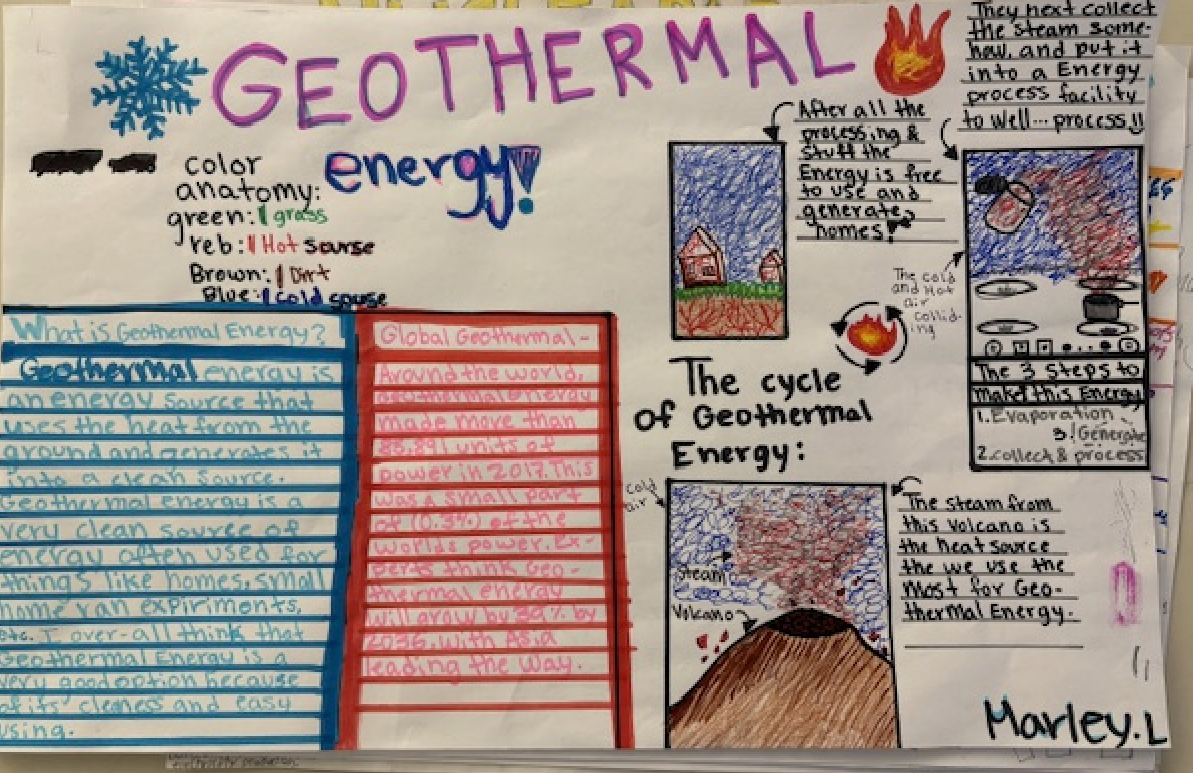 GEOTHERMAL
energy!
color
anatomy:
green: grass
reb: Hot sourse
Brown: Dirt
Blue: cold sourse
What is Geothermal Energy?
Geothermal energy is
an energy source that
uses the heat from the
ground and generates it
into a clean source.
Geothermal energy is a
very clean source of
energy often used for
things like homes, small
home ran expiriments,
etc. I over-all think that
Geothermal Energy is a
very good option because
of its' cleness and easy
using.
Global Geothermal-
Around the world,
geothermal energy
made more than
85,891 units of
power in 2017. This
was a small part
of (0.3%) of the
worlds power. Ex-
perts think Geo-
thermal energy
will grow by 39% by
2036, with ASia
leading the way.
They next collect
the steam some-
how, and put it
into a Energy
process facility
to well... process!!
After all the
processing &
stuff the
Energy is free
to use and
generate
homes!
The cold
and Hot
air
collid-
ing
The 3 steps to
make this Energy
1. Evaporation
3. Generate
2. collect & process
The cycle
of Geothermal
Energy:
cold
air
steam
Volcano
The steam from
this volcano is
the heat source
the we use the
most for Geo-
thermal Energy.
Marley.L